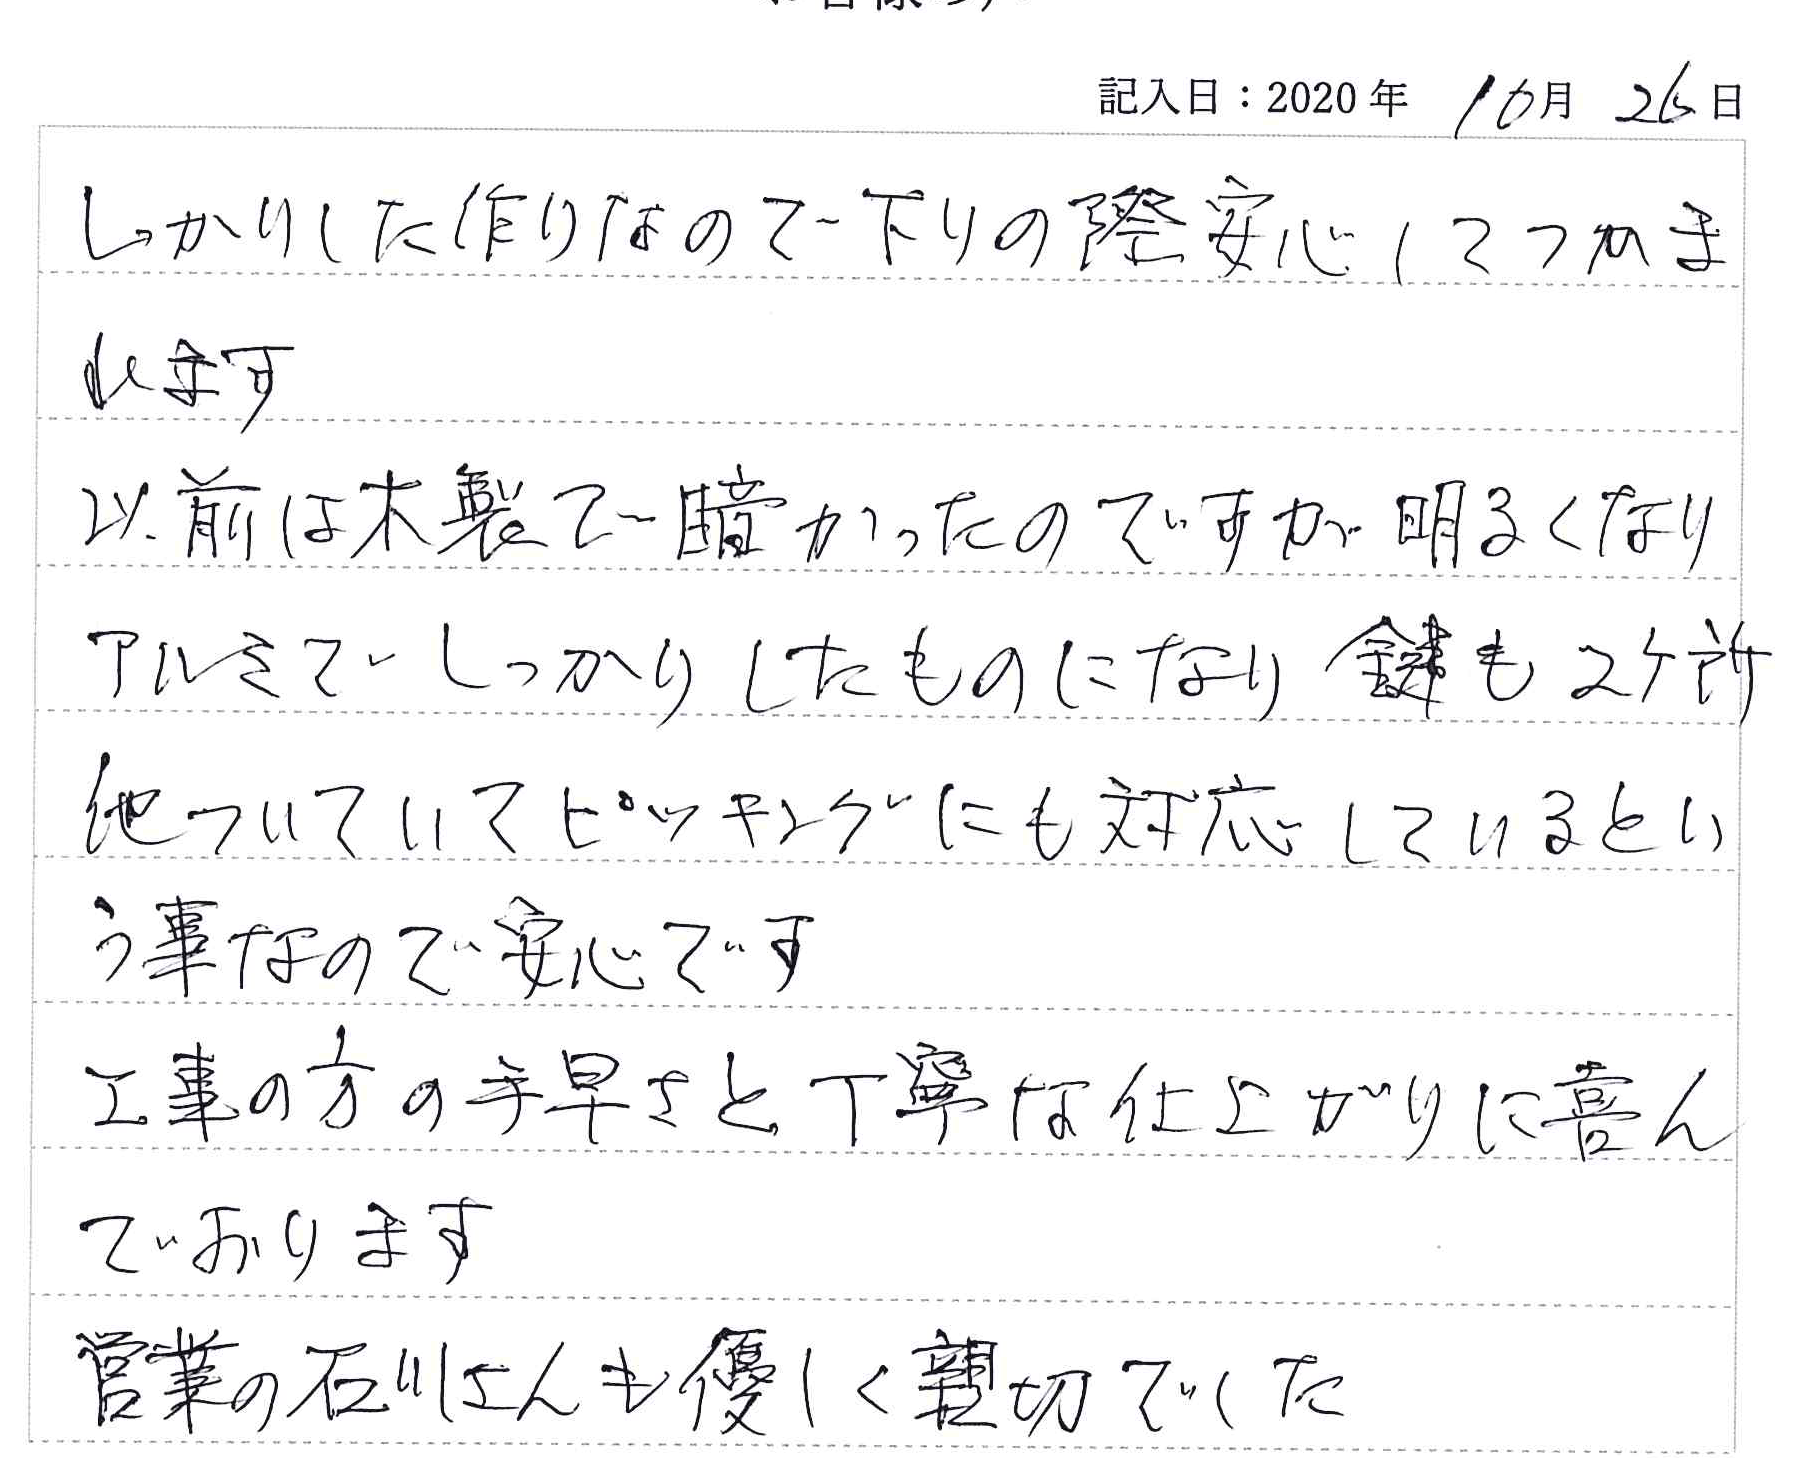 記入日：2020年 10月 26日
しっかりした作りなので下りの際安心してつかま
れます
以前は木製で暗かったのですが明るくなり
アルミでしっかりしたものになり 鍵も2ケ所
他ついていてピッキングにも対応しているとい
う事なので安心です
工事の方の手早さと丁寧な仕上がりに喜ん
でおります
営業の石川さんも優しく親切でした